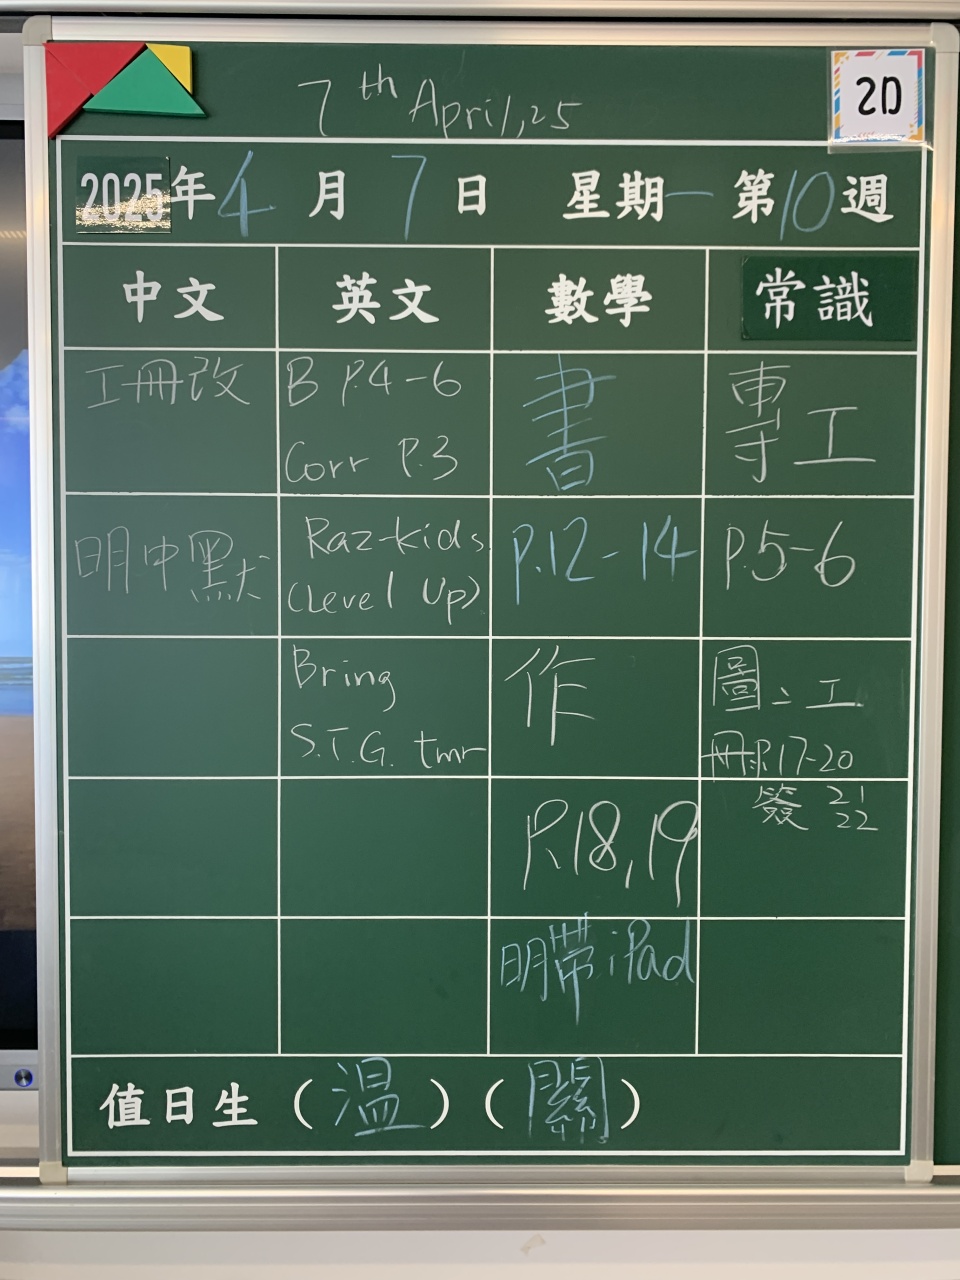 7th April, 25
2D
2025年4月7日 星期一 第10週
中文 英文 數學 常識
工冊改
明中默
B P.4-6
Corr P.3
Raz-kids
(Level Up)
Bring
S.T.G. tmr
書
P.12-14
作
P.18,19
明帶iPad
專工
P.5-6
圖:工
冊P.17-20
簽 21
22
值日生(溫)(關)